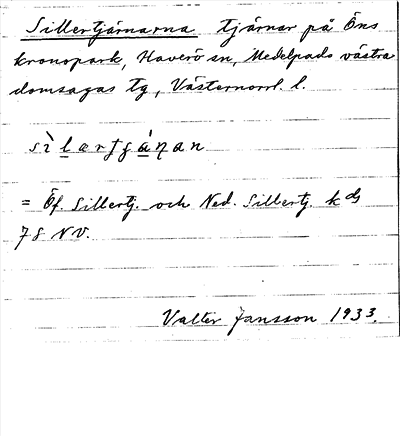 Sillertjärnarna tjärnar på Öns
kronopark, Haverö sn, Medelpads västra
domsagas tg, Västernorrl. l.
= Öf. Sillertj. och Ned. Sillertj. k dg
78 NV.
Valter Jansson 1933.